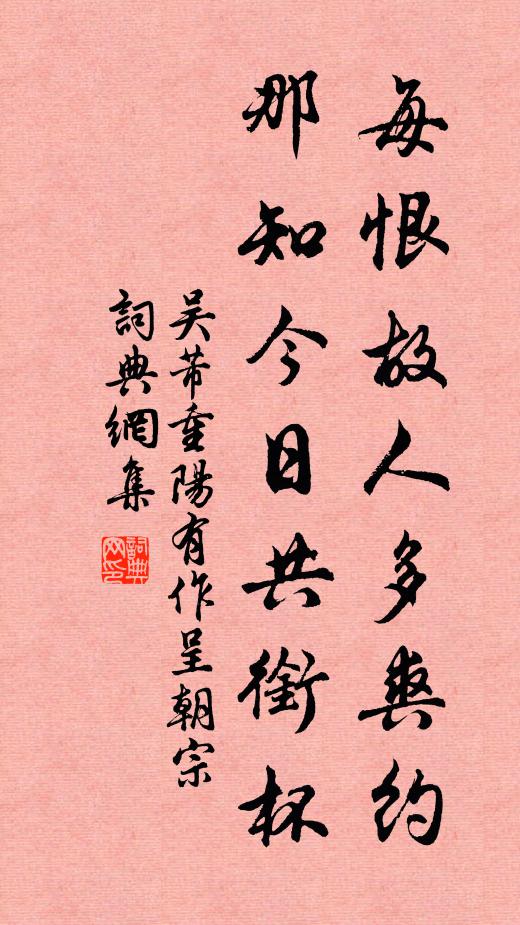 每恨故人多爽约
那知今日共銜杯
吴芾重陽有作呈朝宗
詞典網集
詞典网印